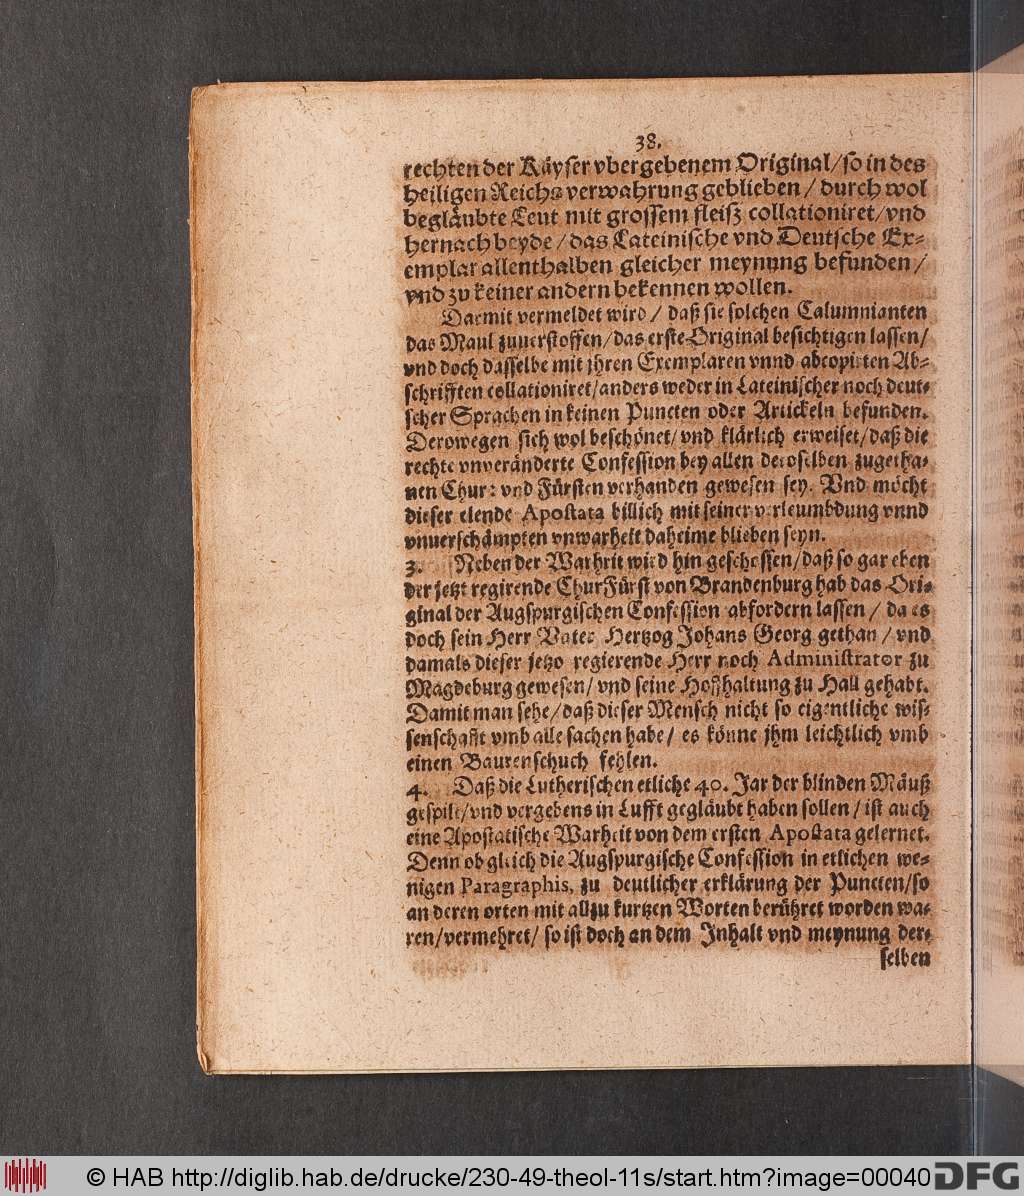 38.
rechten der Käyser vbergebenem Original/ so in des
heiligen Reichs verwahrung geblieben / durch wol
begläubte Leut mit grossem fleiß collationiret/ vnd
hernach beyde / das Lateinische vnd Deutsche Ex-
emplar allenthalben gleicher meynung befunden /
vnd zu keiner andern bekennen wollen.
Darmit vermeldet wird / daß sie solchen Calumnianten
das Maul zuuerstoffen / das erste Original besichtigen lassen/
vnd doch dasselbe mit jhren Exemplaren vnnd abcopirten Ab-
schrifften collationiret/ anders weder in Lateinischer noch deut-
scher Sprachen in keinen Puncten oder Artickeln befunden.
Derowegen sich wol beschönet/ vnd klärlich erweiset/ daß die
rechte vnveränderte Confession bey allen deroselben zugetha-
nen Chur- vnd Fürsten verhanden gewesen sey. Vnd möcht
dieser elende Apostata billich mit seiner verleumbdung vnnd
vnuerschämpten vnwarheit daheime blieben seyn.
3. Neben der Warheit wird hin geschossen/ daß so gar eben
der jetzt regirende ChurFürst von Brandenburg hab das Ori-
ginal der Augspurgischen Confession abfordern lassen / da es
doch sein Herr Vater Hertzog Johans Georg gethan / vnd
damals dieser jetzo regierende Herr noch Administrator zu
Magdeburg gewesen/ vnd seine Hoffhaltung zu Hall gehabt.
Damit man sehe/ daß dieser Mensch nicht so eigentliche wis-
senschafft vmb alle sachen habe/ es könne jhm leichtlich vmb
einen Baurenschuch fehlen.
4. Daß die Lutherischen etliche 40. Jar der blinden Mäuß
gespilt/ vnd vergebens in Lufft gegläubt haben sollen / ist auch
eine Apostatische Warheit von dem ersten Apostata gelernet.
Denn ob gleich die Augspurgische Confession in etlichen we-
nigen Paragraphis, zu deutlicher erklärung der Puncten/ so
an deren orten mit allzu kurtzen Worten berühret worden wa-
ren/ vermehret/ so ist doch an dem Inhalt vnd meynung der-
selben
© HAB http://diglib.hab.de/drucke/230-49-theol-11s/start.htm?image=00040
DFG